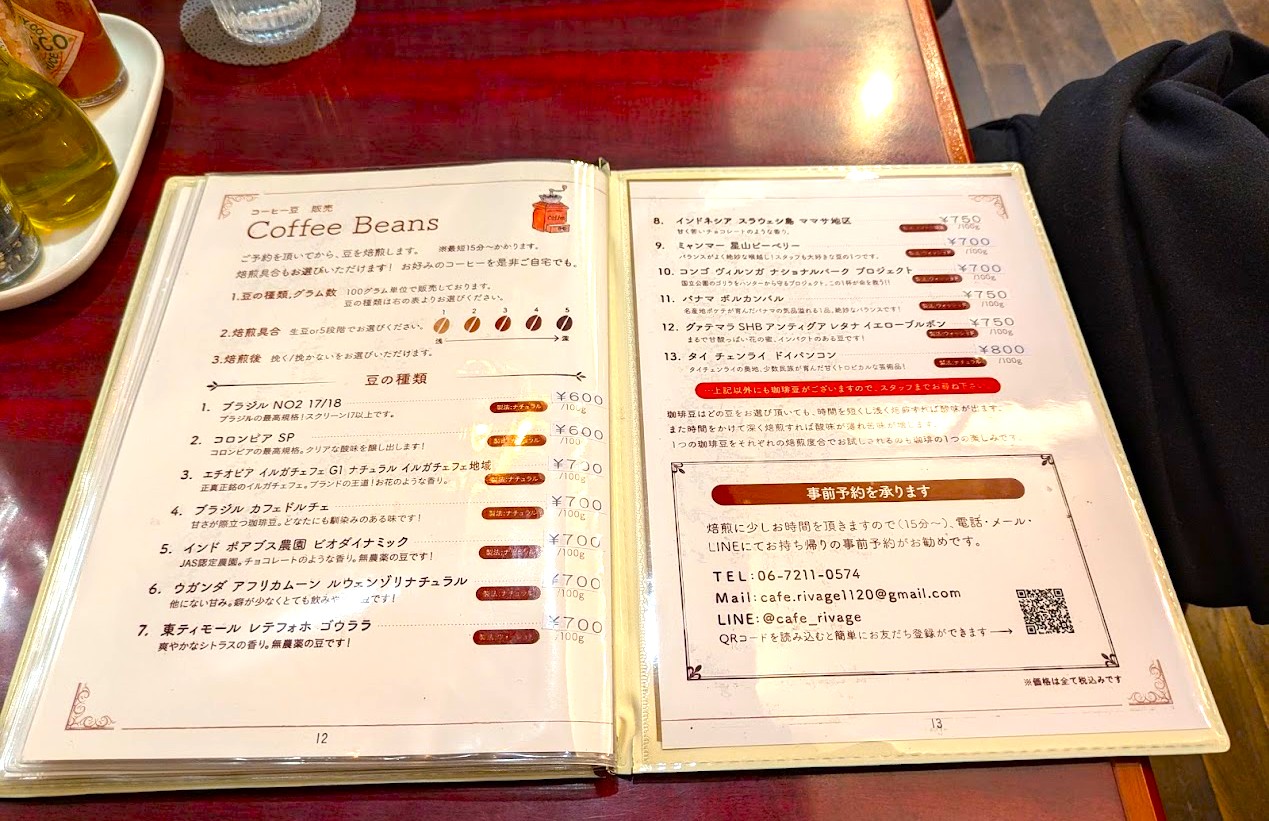 コーヒー豆 販売
Coffee Beans
ご予約を頂いてから、豆を焙煎します。 ※最短15分〜かかります。
焙煎具合もお選びいただけます! お好みのコーヒーを是非ご自宅でも。
1.豆の種類,グラム数 100グラム単位で販売しております。
豆の種類は右の表よりお選びください。
2.焙煎具合 生豆or5段階でお選びください。
1 2 3 4 5
浅 深
3.焙煎後 挽く/挽かないをお選びいただけます。
豆の種類
1. ブラジル NO2 17/18 ¥600
ブラジルの最高規格!スクリーン17以上です。 製法:ナチュラル /100g
2. コロンビア SP ¥600
コロンビアの最高規格。クリアな酸味を醸し出します! /100
3. エチオピア イルガチェフェ G1 ナチュラル イルガチェフェ地域 ¥700
正真正銘のイルガチェフェ。ブランドの王道!お花のような香り。 製法:ナチュラル /100g
4. ブラジル カフェドルチェ ¥700
甘さが際立つ珈琲豆。どなたにも馴染みのある味です! 製法:ナチュラル /100g
5. インド ポアブス農園 ビオダイナミック ¥700
JAS認定農園。チョコレートのような香り。無農薬の豆です! /100g
6. ウガンダ アフリカムーン ルウェンゾリナチュラル ¥700
他にない甘み。癖が少なくとても飲みや 豆です! 製法:ナチュラル /100g
7. 東ティモール レテフォホ ゴウララ ¥700
爽やかなシトラスの香り。無農薬の豆です! 製法:ウォッシュ /100g
12
8. インドネシア スラウェシ島 ママサ地区 ¥750
甘く苦いチョコレートのような香り。 /100g
9. ミャンマー 星山ピーベリー ¥700
バランスがよく絶妙な喉越し!スタッフも大好きな豆の1つです。 /100g
10. コンゴ ヴィルンガ ナショナルパーク プロジェクト ¥700
国立公園のゴリラをハンターから守るプロジェクト。この1杯が命を救う!! /100g
11. パナマ ボルカンバル ¥750
名産地ボケテが育んだパナマの気品溢れる1品。絶妙なバランスです! /100g
12. グァテマラ SHB アンティグア レタナ イエローブルボン ¥750
まるで甘酸っぱい花の蜜。インパクトのある豆です! /100g
13. タイ チェンライ ドイパンコン ¥800
タイチェンライの奥地、少数民族が育んだ甘くトロピカルな芸術品! 製法:ナチュラル /100g
上記以外にも珈琲豆がございますので、スタッフまでお尋ね下さい。
珈琲豆はどの豆をお選び頂いても、時間を短くし浅く焙煎すれば酸味が出ます。
また時間をかけて深く焙煎すれば酸味が薄れ苦味が増します。
1つの珈琲豆をそれぞれの焙煎度合でお試しされるのも珈琲の1つの楽しみです。
事前予約を承ります
焙煎に少しお時間を頂きますので(15分〜)、電話・メール・
LINEにてお持ち帰りの事前予約がお勧めです。
TEL:06-7211-0574
Mail:cafe.rivage1120@gmail.com
LINE:@cafe_rivage
QRコードを読み込むと簡単にお友だち登録ができます
※価格は全て税込みです
13